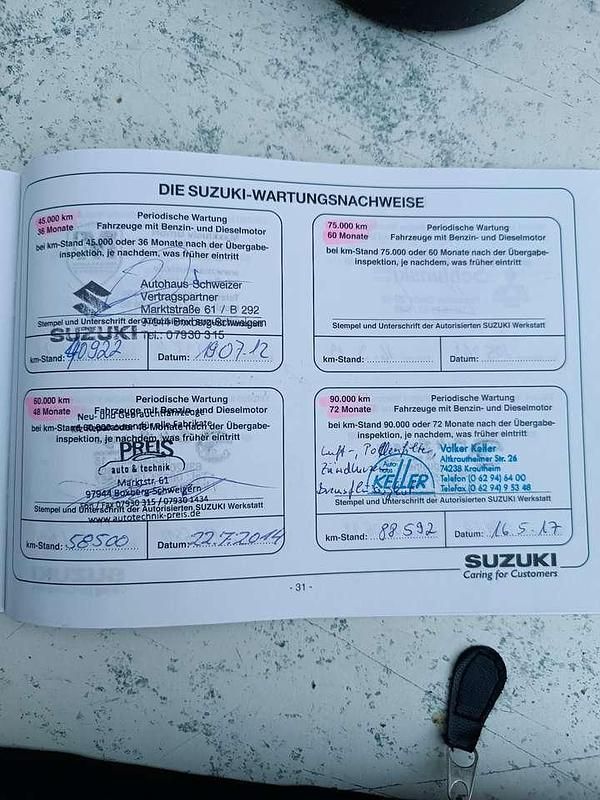 DIE SUZUKI-WARTUNGSNACHWEISE
45.000 km
36 Monate
Periodische Wartung
Fahrzeuge mit Benzin- und Dieselmotor
bei km-Stand 45.000 oder 36 Monate nach der Übergabe-
inspektion, je nachdem, was früher eintritt
Autohaus Schweizer
Vertragspartner
Marktstraße 61 / B 292
97944 Boxberg-Schweigern
Stempel und Unterschrift der Autorisierten SUZUKI Werkstatt
SUZUKI
Tel.: 07930 315
km-Stand: 40922 Datum: 19.07.12
75.000 km
60 Monate
Periodische Wartung
Fahrzeuge mit Benzin- und Dieselmotor
bei km-Stand 75.000 oder 60 Monate nach der Übergabe-
inspektion, je nachdem, was früher eintritt
Stempel und Unterschrift der Autorisierten SUZUKI Werkstatt
km-Stand: Datum:
60.000 km
48 Monate
Periodische Wartung
Fahrzeuge mit Benzin- und Dieselmotor
Neu- und Gebrauchtfahrzeuge
bei km-Stand 60.000 oder 48 Monate nach der Übergabe-
inspektion, je nachdem, was früher eintritt
PREIS
auto & technik
Marktstr. 61
97944 Boxberg-Schweigern
Tel./Fax 07930 315 / 07930 1434
Stempel und Unterschrift der Autorisierten SUZUKI Werkstatt
www.autotechnik-preis.de
km-Stand: 58500 Datum: 22.7.2014
90.000 km
72 Monate
Periodische Wartung
Fahrzeuge mit Benzin- und Dieselmotor
bei km-Stand 90.000 oder 72 Monate nach der Übergabe-
inspektion, je nachdem, was früher eintritt
Luft-, Pollenfilter
Auto
KELLER
Volker Keller
Altkrautheimer Str. 26
74238 Krautheim
Telefon (0 62 94) 64 00
Telefax (0 62 94) 9 53 48
Stempel und Unterschrift der Autorisierten SUZUKI Werkstatt
km-Stand: 88592 Datum: 16.5.17
SUZUKI
Caring for Customers
- 31 -